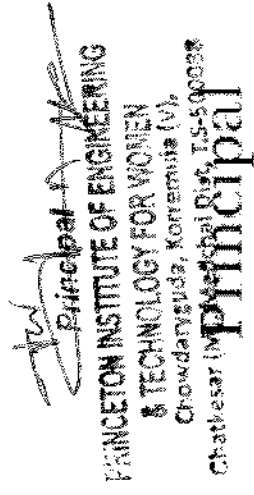 Principal
PRINCETON INSTITUTE OF ENGINEERING
& TECHNOLOGY FOR WOMEN
Chowdaryguda, Korremula (v),
Ghatkesar Dist, T.S-500038
Principal